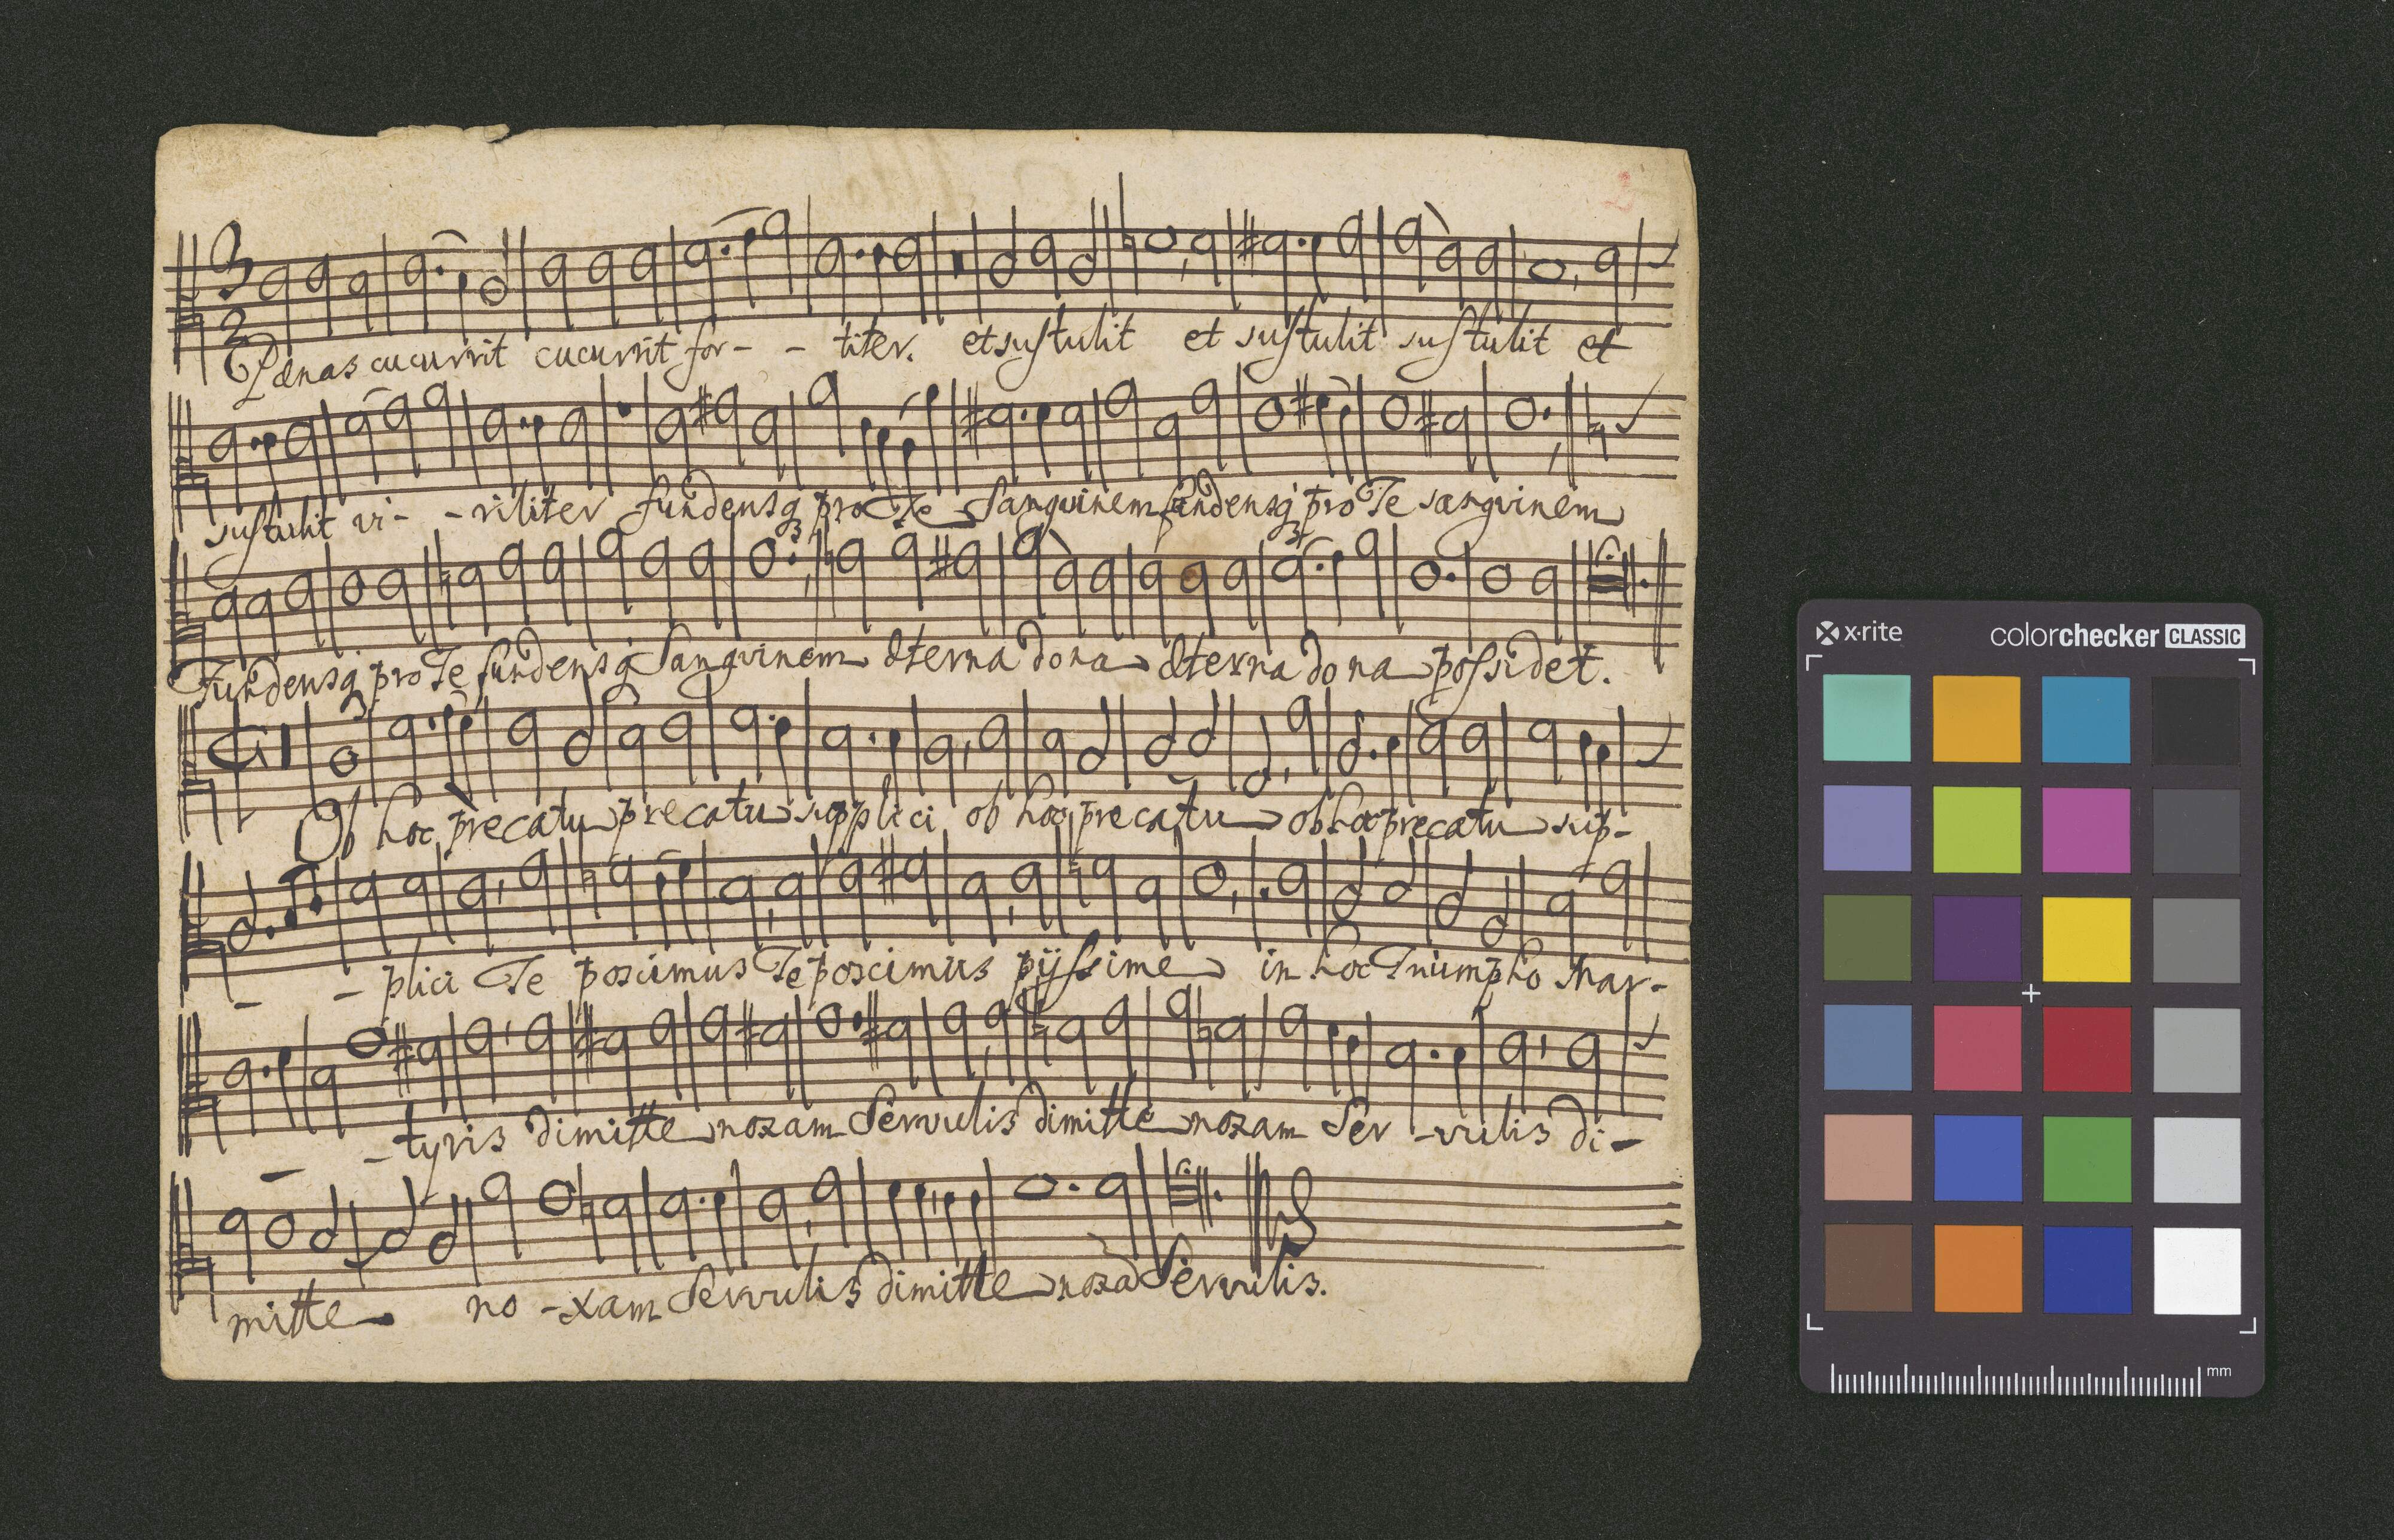 2
3
2
Pænas cucurrit cucurrit for- - titer. et sustulit et sustulit sustulit et
sustulit vi- -riliter fundensq₃ pro Te Sanguinem fundensq₃ pro Te sanguinem
Fundensq₃ pro Te fundensq₃ Sanguinem æterna dona æterna dona possidet.
Ob hoc precatu precatu supplici ob hoc precatu ob hoc precatu sup-
- - plici Te poscimus Te poscimus pijssime in hoc Triumpho Mar-
- - tyris dimitte noxam Servulis dimitte noxam Ser -vulis di-
mitte no -xam Servulis dimitte noxã Servulis.
x·rite colorchecker CLASSIC
mm